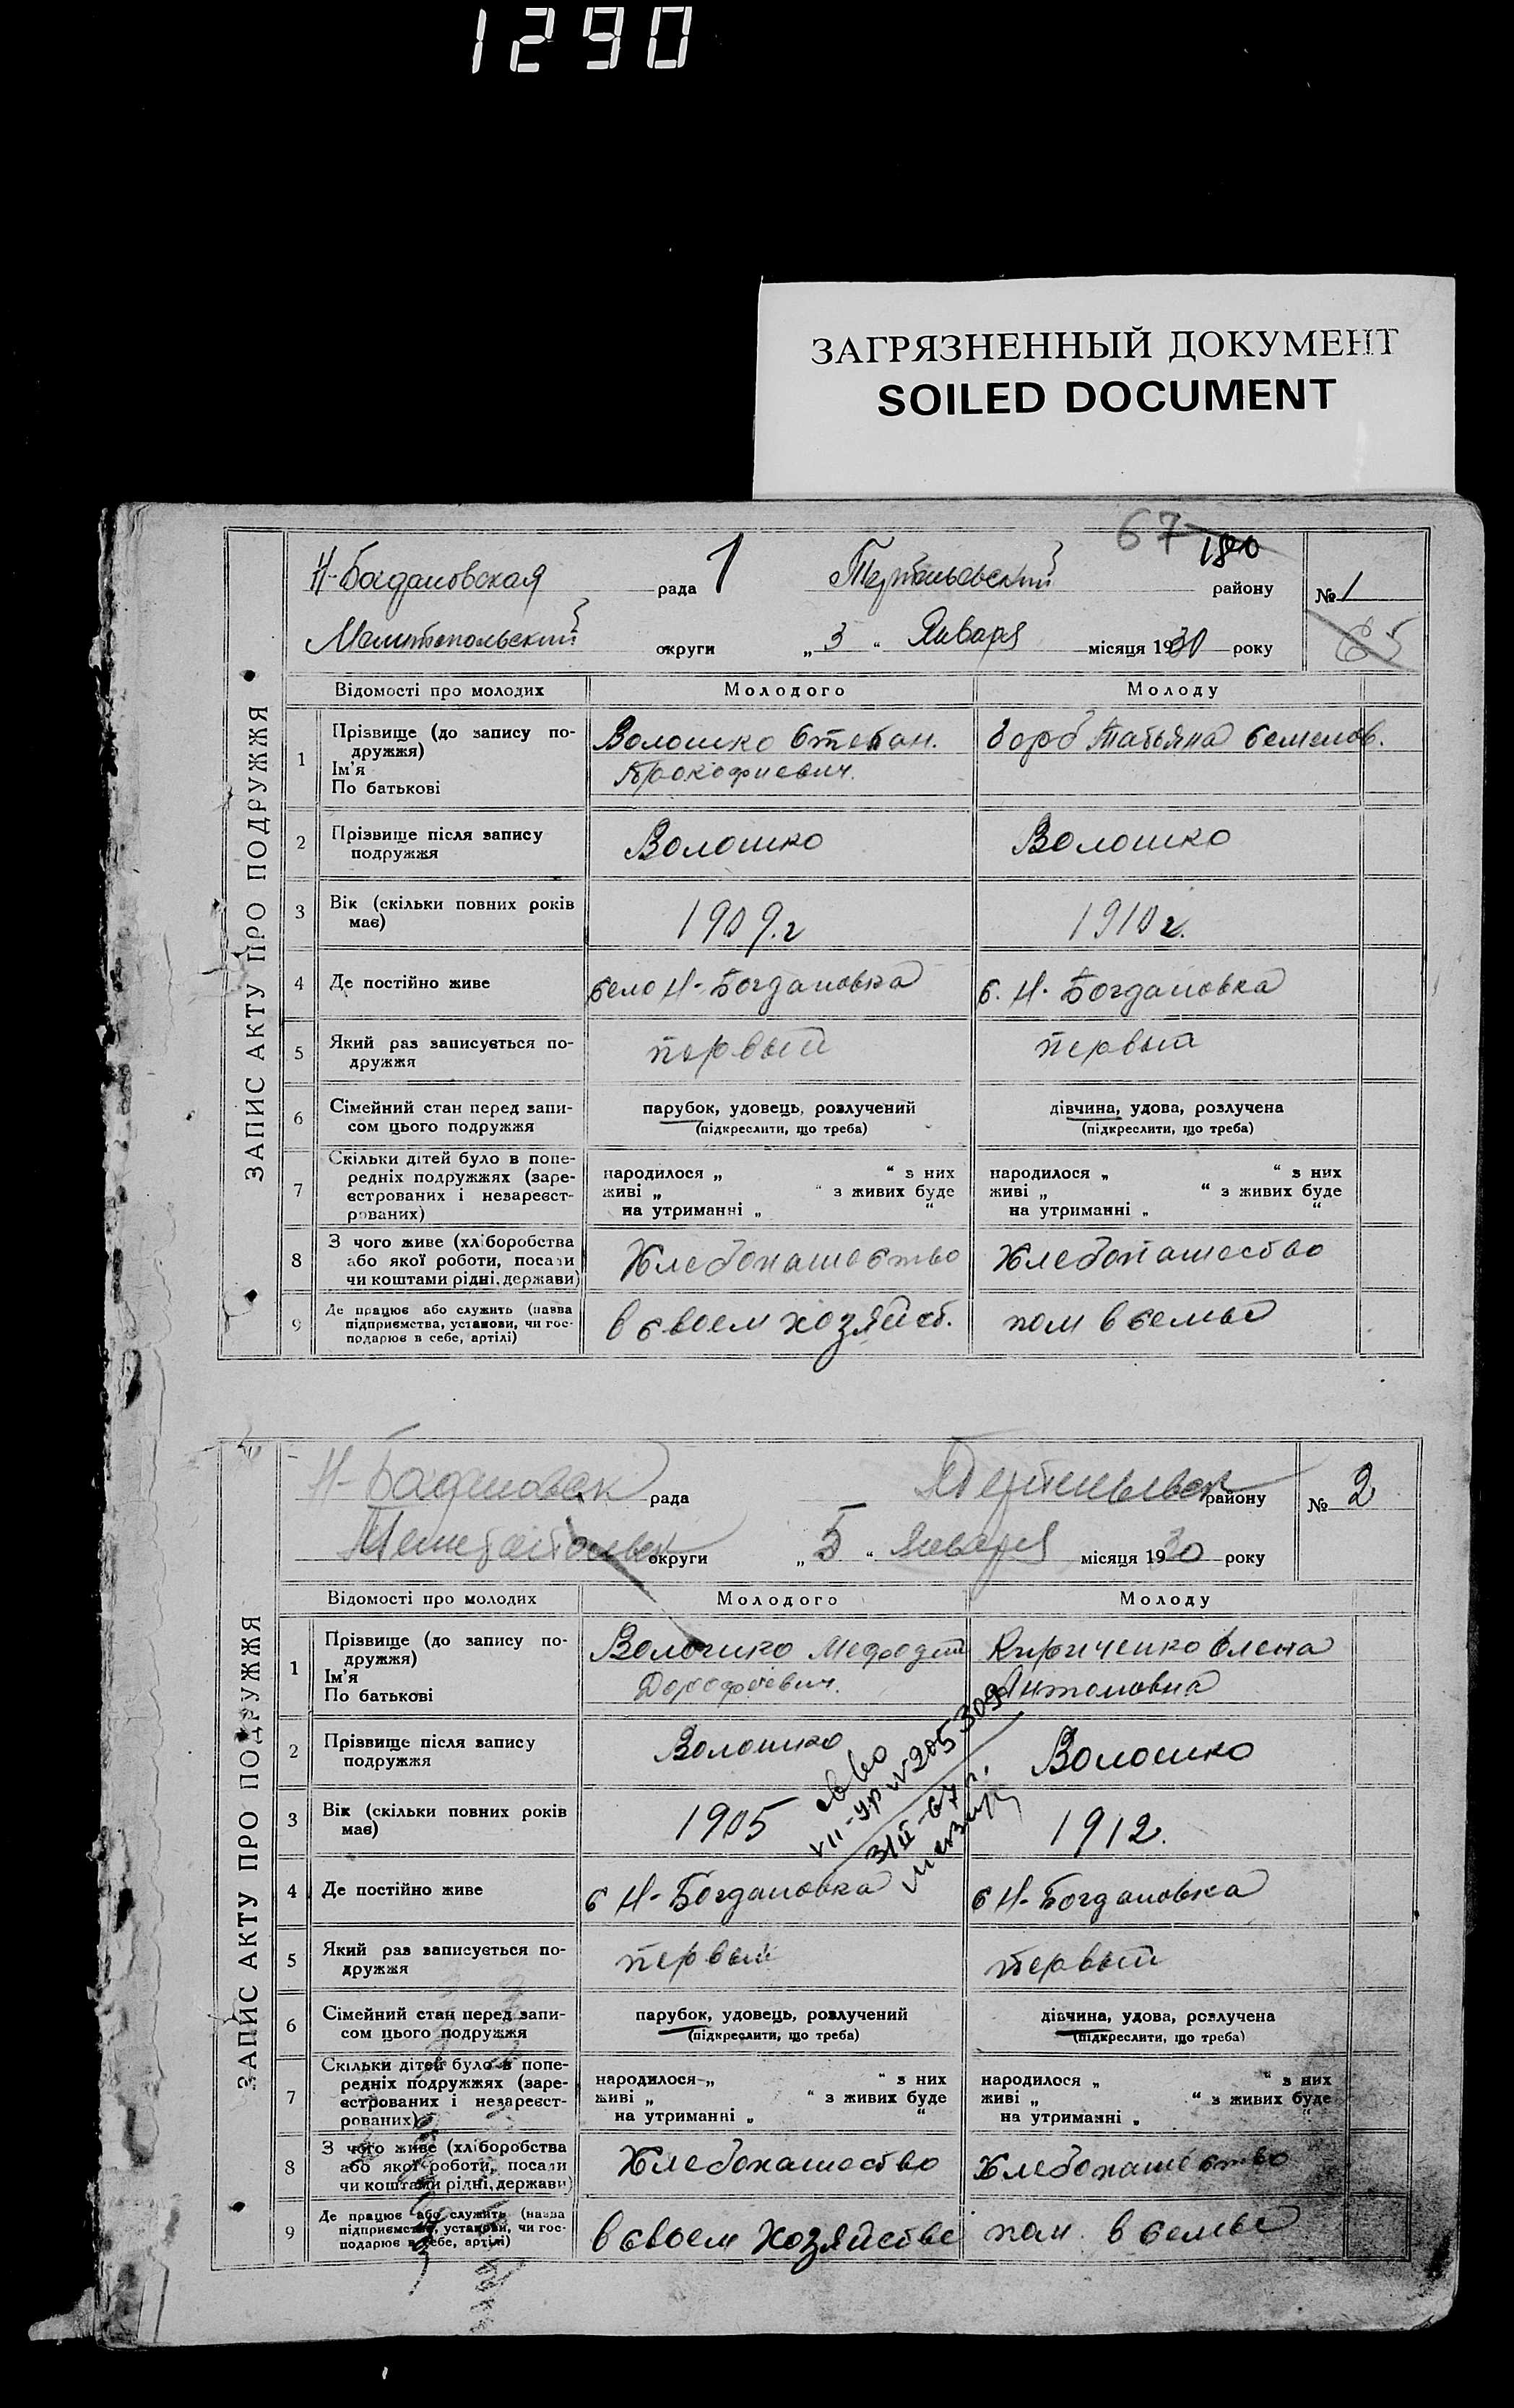 1290
ЗАГРЯЗНЕННЫЙ ДОКУМЕНТ
SOILED DOCUMENT
67 180
ЗАПИС АКТУ ПРО ПОДРУЖЖЯ
Н-Богдановская рада 1 Терпеньевский району № 1
Мелитопольский округи „ 3 “ Января місяця 1930 року 65
Відомості про молодих Молодого Молоду
1 Прізвище (до запису по-дружжя) Ім'я По батькові Волошко Степан. Горб Татьяна Семенов.
Прокофиевич.
2 Прізвище після запису подружжя Волошко Волошко
3 Вік (скільки повних років має) 1909.г 1910г.
4 Де постійно живе село Н-Богдановка с. Н-Богдановка
5 Який раз записується по-дружжя первый первый
6 Сімейний стан перед запи-сом цього подружжя парубок, удовець, розлучений дівчина, удова, розлучена
(підкреслити, що треба) (підкреслити, що треба)
7 Скільки дітей було в попе-редніх подружжях (заре-єстрованих і незареєст-рованих) народилося „ “ з них народилося „ “ з них
живі „ “ з живих буде живі „ “ з живих буде
на утриманні „ “ на утриманні „ “
8 З чого живе (хліборобства або якої роботи, посади чи коштами рідні, держави) Хлебопашество Хлебопашество
9 Де працює або служить (назва підприємства, установи, чи гос-подарює в себе, артілі) в своем хозяйст. пом в семье
ЗАПИС АКТУ ПРО ПОДРУЖЖЯ
Н-Богдановск рада Терпеньевск району № 2
Мелитопольск округи „ 5 “ Января місяця 1930 року
Відомості про молодих Молодого Молоду
1 Прізвище (до запису по-дружжя) Ім'я По батькові Волошко Мефодий Кириченко Елена
Дорофеевич. Антоновна
2 Прізвище після запису подружжя Волошко Волошко
3 Вік (скільки повних років має) 1905 1912.
св-во
VII-УР N 205309
3/II-67 г.
4 Де постійно живе с Н-Богдановка с Н-Богдановка
5 Який раз записується по-дружжя первый первый
6 Сімейний стан перед запи-сом цього подружжя парубок, удовець, розлучений дівчина, удова, розлучена
(підкреслити, що треба) (підкреслити, що треба)
7 Скільки дітей було в попе-редніх подружжях (заре-єстрованих і незареєст-рованих) народилося „ “ з них народилося „ “ з них
живі „ “ з живих буде живі „ “ з живих буде
на утриманні „ “ на утриманні „ “
8 З чого живе (хліборобства або якої роботи, посади чи коштами рідні, держави) Хлебопашество Хлебопашество
9 Де працює або служить (назва підприємства, установи, чи гос-подарює в себе, артілі) в своем хозяйстве пом. в семье